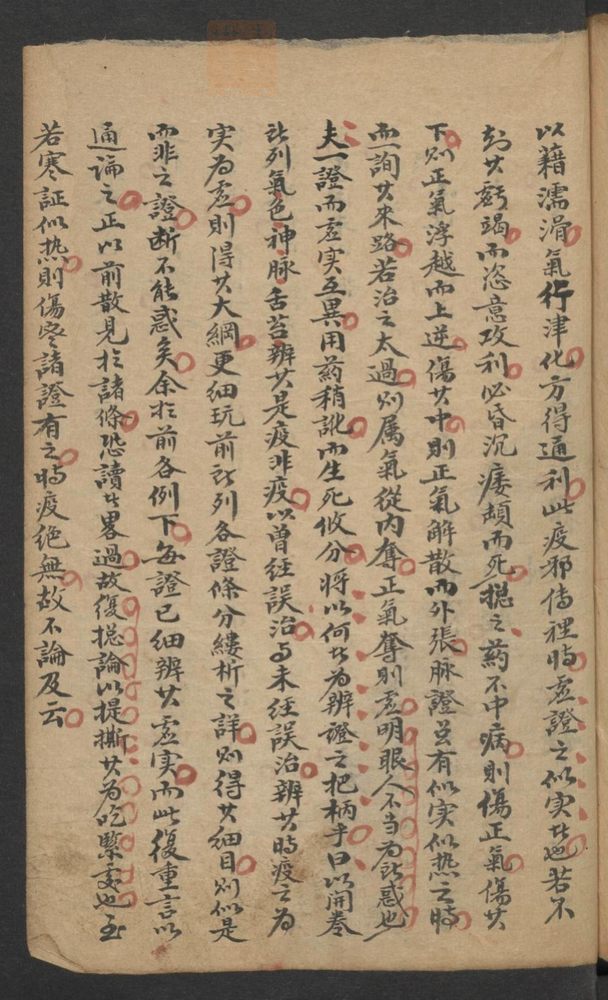 以藉濡滑氣行津化方得通利此疫邪傳裡時虛證之似实者也若不
訪其虧竭而恣意攻利必昏沉痿頓而死摠之藥不中病則傷正氣傷其
下則正氣浮越而上逆傷其中則正氣解散而外張脉證並有似实似热之時
而一詢其來路若治之太過則属氣從内奪正氣奪則虛明眼人不当为所惑也
夫一證而虛实互異用药稍訛而生死攸分將以何者为辨證之把柄乎曰以開卷
所列氣色神脉舌苔辨其是疫非疫以曾经誤治与未经誤治辨其時疫之为
实为虛則得其大綱更細玩前所列各證條分縷析之詳則得其細目则似是
而非之證断不能惑矣余扵前各例下每證已細辨其虛实而此復重言以
通論之正以前散見扵諸條恐讀者畧過故復摠論以提撕其为吃緊處也至
若寒証似热則傷寒諸證有之時疫绝無故不論及云